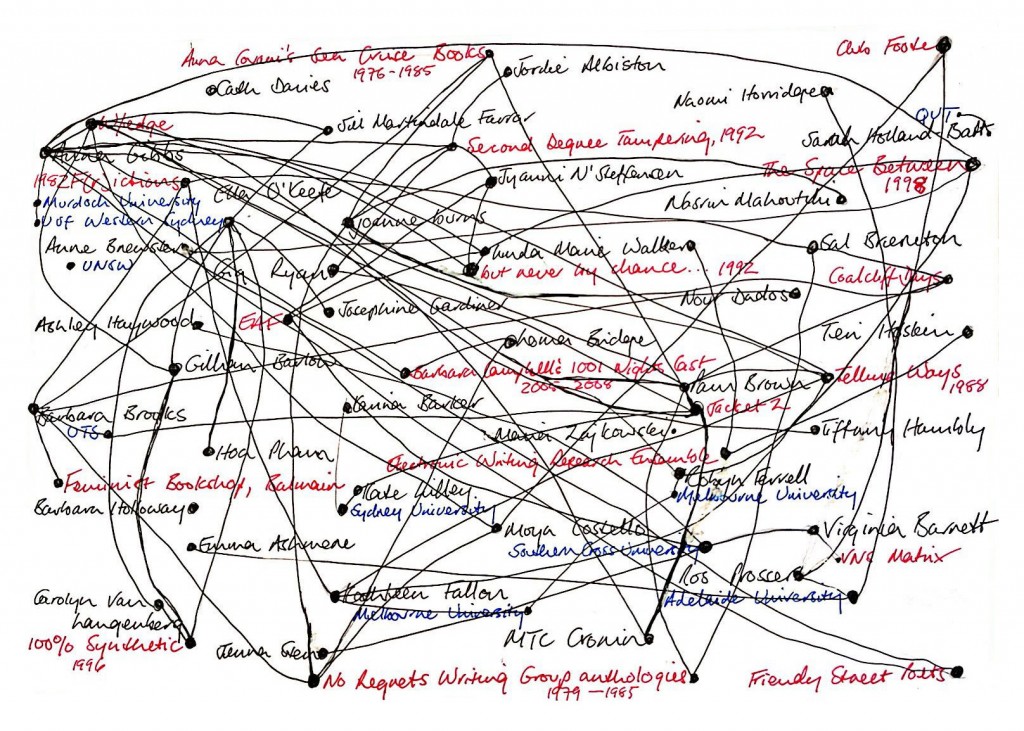 Anna Couani's Sea Cruise Books
1976-1985
Club Foote
Jordie Albiston
Cath Davies
Naomi Horridge
QUT
Jill Martindale Farrar
Sarah Holland-Batt
Second Degree Tampering, 1992
Anna Gibbs
The Space Between
1998
1982 Frictions
Ella O'Keefe
Jyanni N'Steffensen
Nasrin Mahoutchi
Murdoch University
U of Western Sydney
Joanne Burns
Anne Brewster
UNSW
Gig Ryan
Linda Marie Walker
Sal Brereton
but never by chance.... 1992
Coalcliff Days
Nour Dados
Josephine Gardiner
Ashley Haywood
EAF
Teri Hoskin
Lorner Bridge
Gillian Barlow
Barbara Campbell's 1001 Nights Cast
2005-2008
Pam Brown
Telling Ways
1988
Barbara Brooks
Karina Barker
Jacket 2
UTS
Maria Zajkowski
Tiffany Hambly
Hoa Pham
Electronic Writing Research Ensemble
Feminist Bookshop, Balmain
Robyn Ferrell
Melbourne University
Kate Lilley
Sydney University
Barbara Holloway
Moya Costello
Southern Cross University
Virginia Barnett
Emma Ashmere
VNS Matrix
Ros Prosser
Adelaide University
Carolyn Van
Langenberg
Kathleen Fallon
Melbourne University
100% Synthetic
1996
MTC Cronin
Jenna
No Regrets Writing Group anthologies
1979-1985
Friendly Street Poets